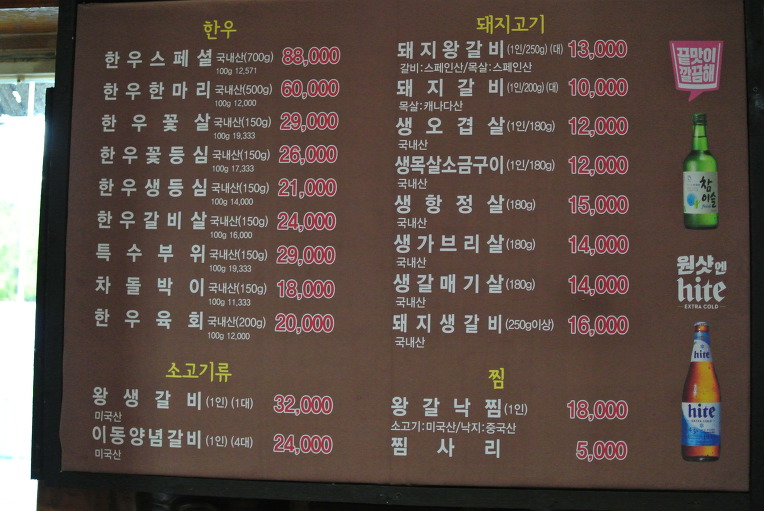 한우
한우스페셜 국내산(700g) 88,000
100g 12,571
한우한마리 국내산(500g) 60,000
100g 12,000
한우꽃살 국내산(150g) 29,000
100g 19,333
한우꽃등심 국내산(150g) 26,000
100g 17,333
한우생등심 국내산(150g) 21,000
100g 14,000
한우갈비살 국내산(150g) 24,000
100g 16,000
특수부위 국내산(150g) 29,000
100g 19,333
차돌박이 국내산(150g) 18,000
100g 11,333
한우육회 국내산(200g) 20,000
100g 12,000
소고기류
왕생갈비 (1인) (1대) 32,000
미국산
이동양념갈비 (1인) (4대) 24,000
미국산
돼지고기
돼지왕갈비 (1인/250g) (대) 13,000
갈비:스페인산/목살:스페인산
돼지갈비 (1인/200g) (대) 10,000
목살:캐나다산
생오겹살 (1인/180g) 12,000
국내산
생목살소금구이 (1인/180g) 12,000
국내산
생항정살 (180g) 15,000
국내산
생가브리살 (180g) 14,000
국내산
생갈매기살 (180g) 14,000
국내산
돼지생갈비 (250g이상) 16,000
국내산
찜
왕갈낙찜 (1인) 18,000
소고기:미국산/낙지:중국산
찜사리 5,000
끝맛이
깔끔해
참이슬
원샷엔
hite
EXTRA COLD
hite
hite